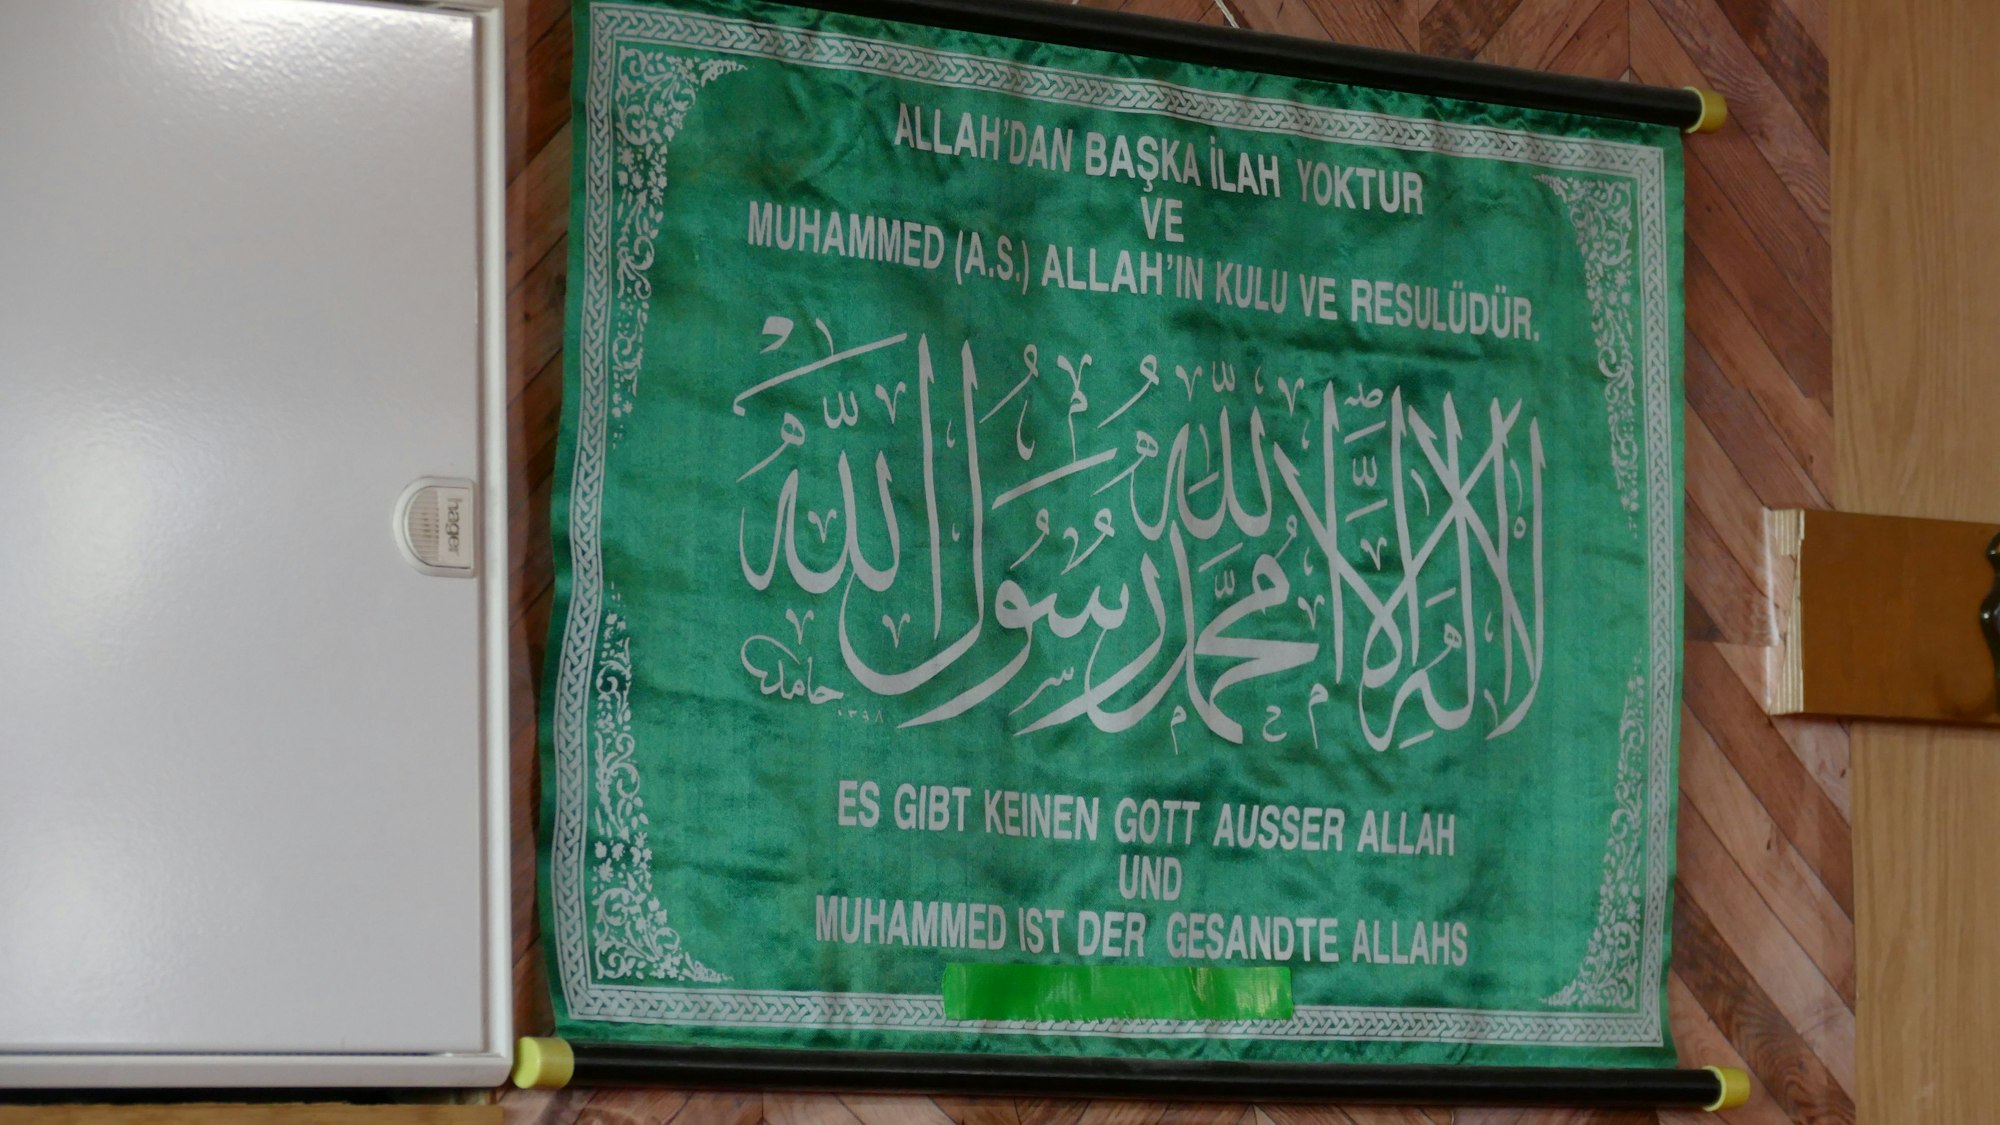 ALLAH'DAN BAŞKA İLAH YOKTUR
VE
MUHAMMED (A.S.) ALLAH'IN KULU VE RESULÜDÜR.
لا إله إلا الله محمد رسول الله
حامد
١٣٩٨
ES GIBT KEINEN GOTT AUSSER ALLAH
UND
MUHAMMED IST DER GESANDTE ALLAHS
hager